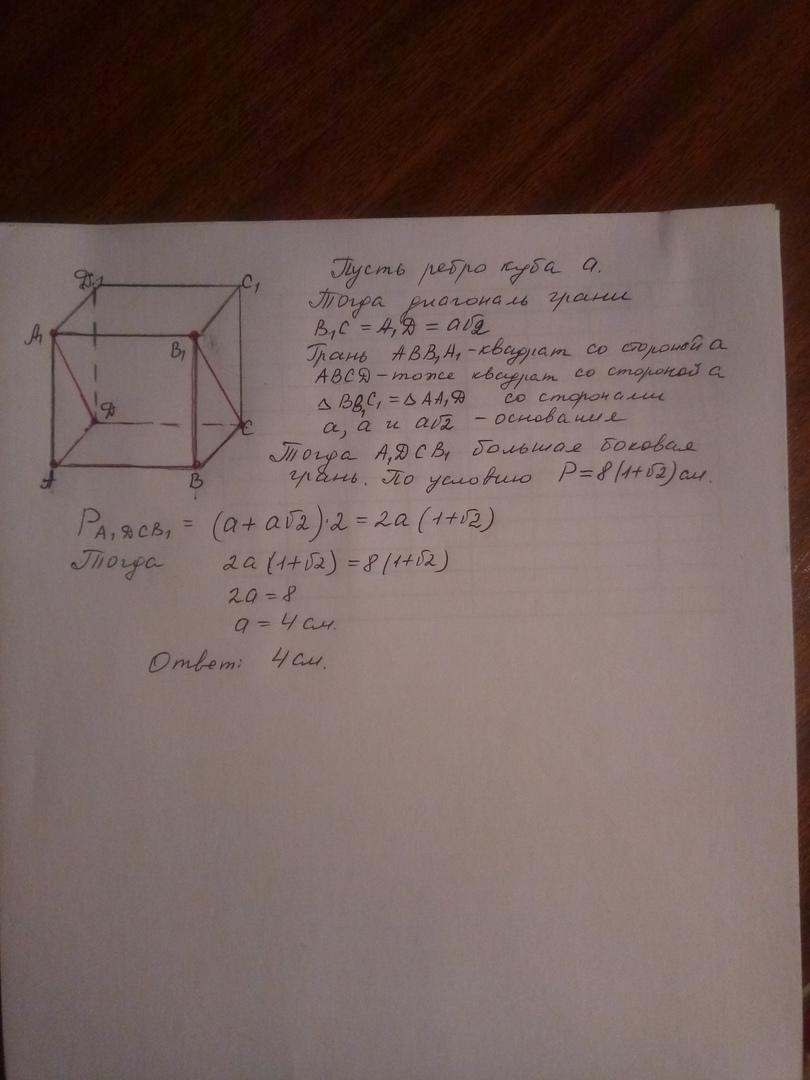 Д1
C1
A1
B1
Д
C
A
B
Пусть ребро куба a.
Тогда диагональ грани
B1C = A1Д = a√2
Грань ABB1A1 - квадрат со стороной a
ABCД - тоже квадрат со стороной a
△ BB1C1 = △ AA1Д со сторонами
a, a и a√2 - основания
Тогда A1ДCB1 большая боковая
грань. По условию P = 8(1+√2) см.
P A1ДCB1 = (a + a√2)·2 = 2a(1+√2)
Тогда 2a(1+√2) = 8(1+√2)
2a = 8
a = 4 см.
Ответ: 4 см.